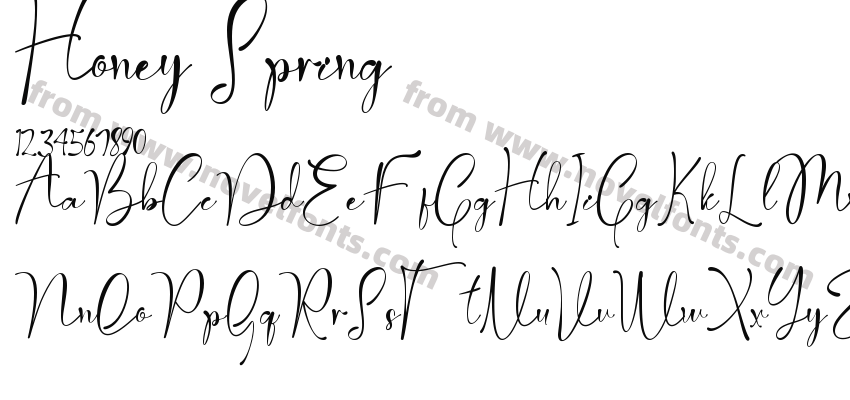 Honey Spring
1234567890
AaBbCcDdEeFfGgHhIiGgKkLlMm
NnOoPpQqRrSsTtUuVvWwXxYyZ
from www.novelfonts.com
from www.novelfonts.com